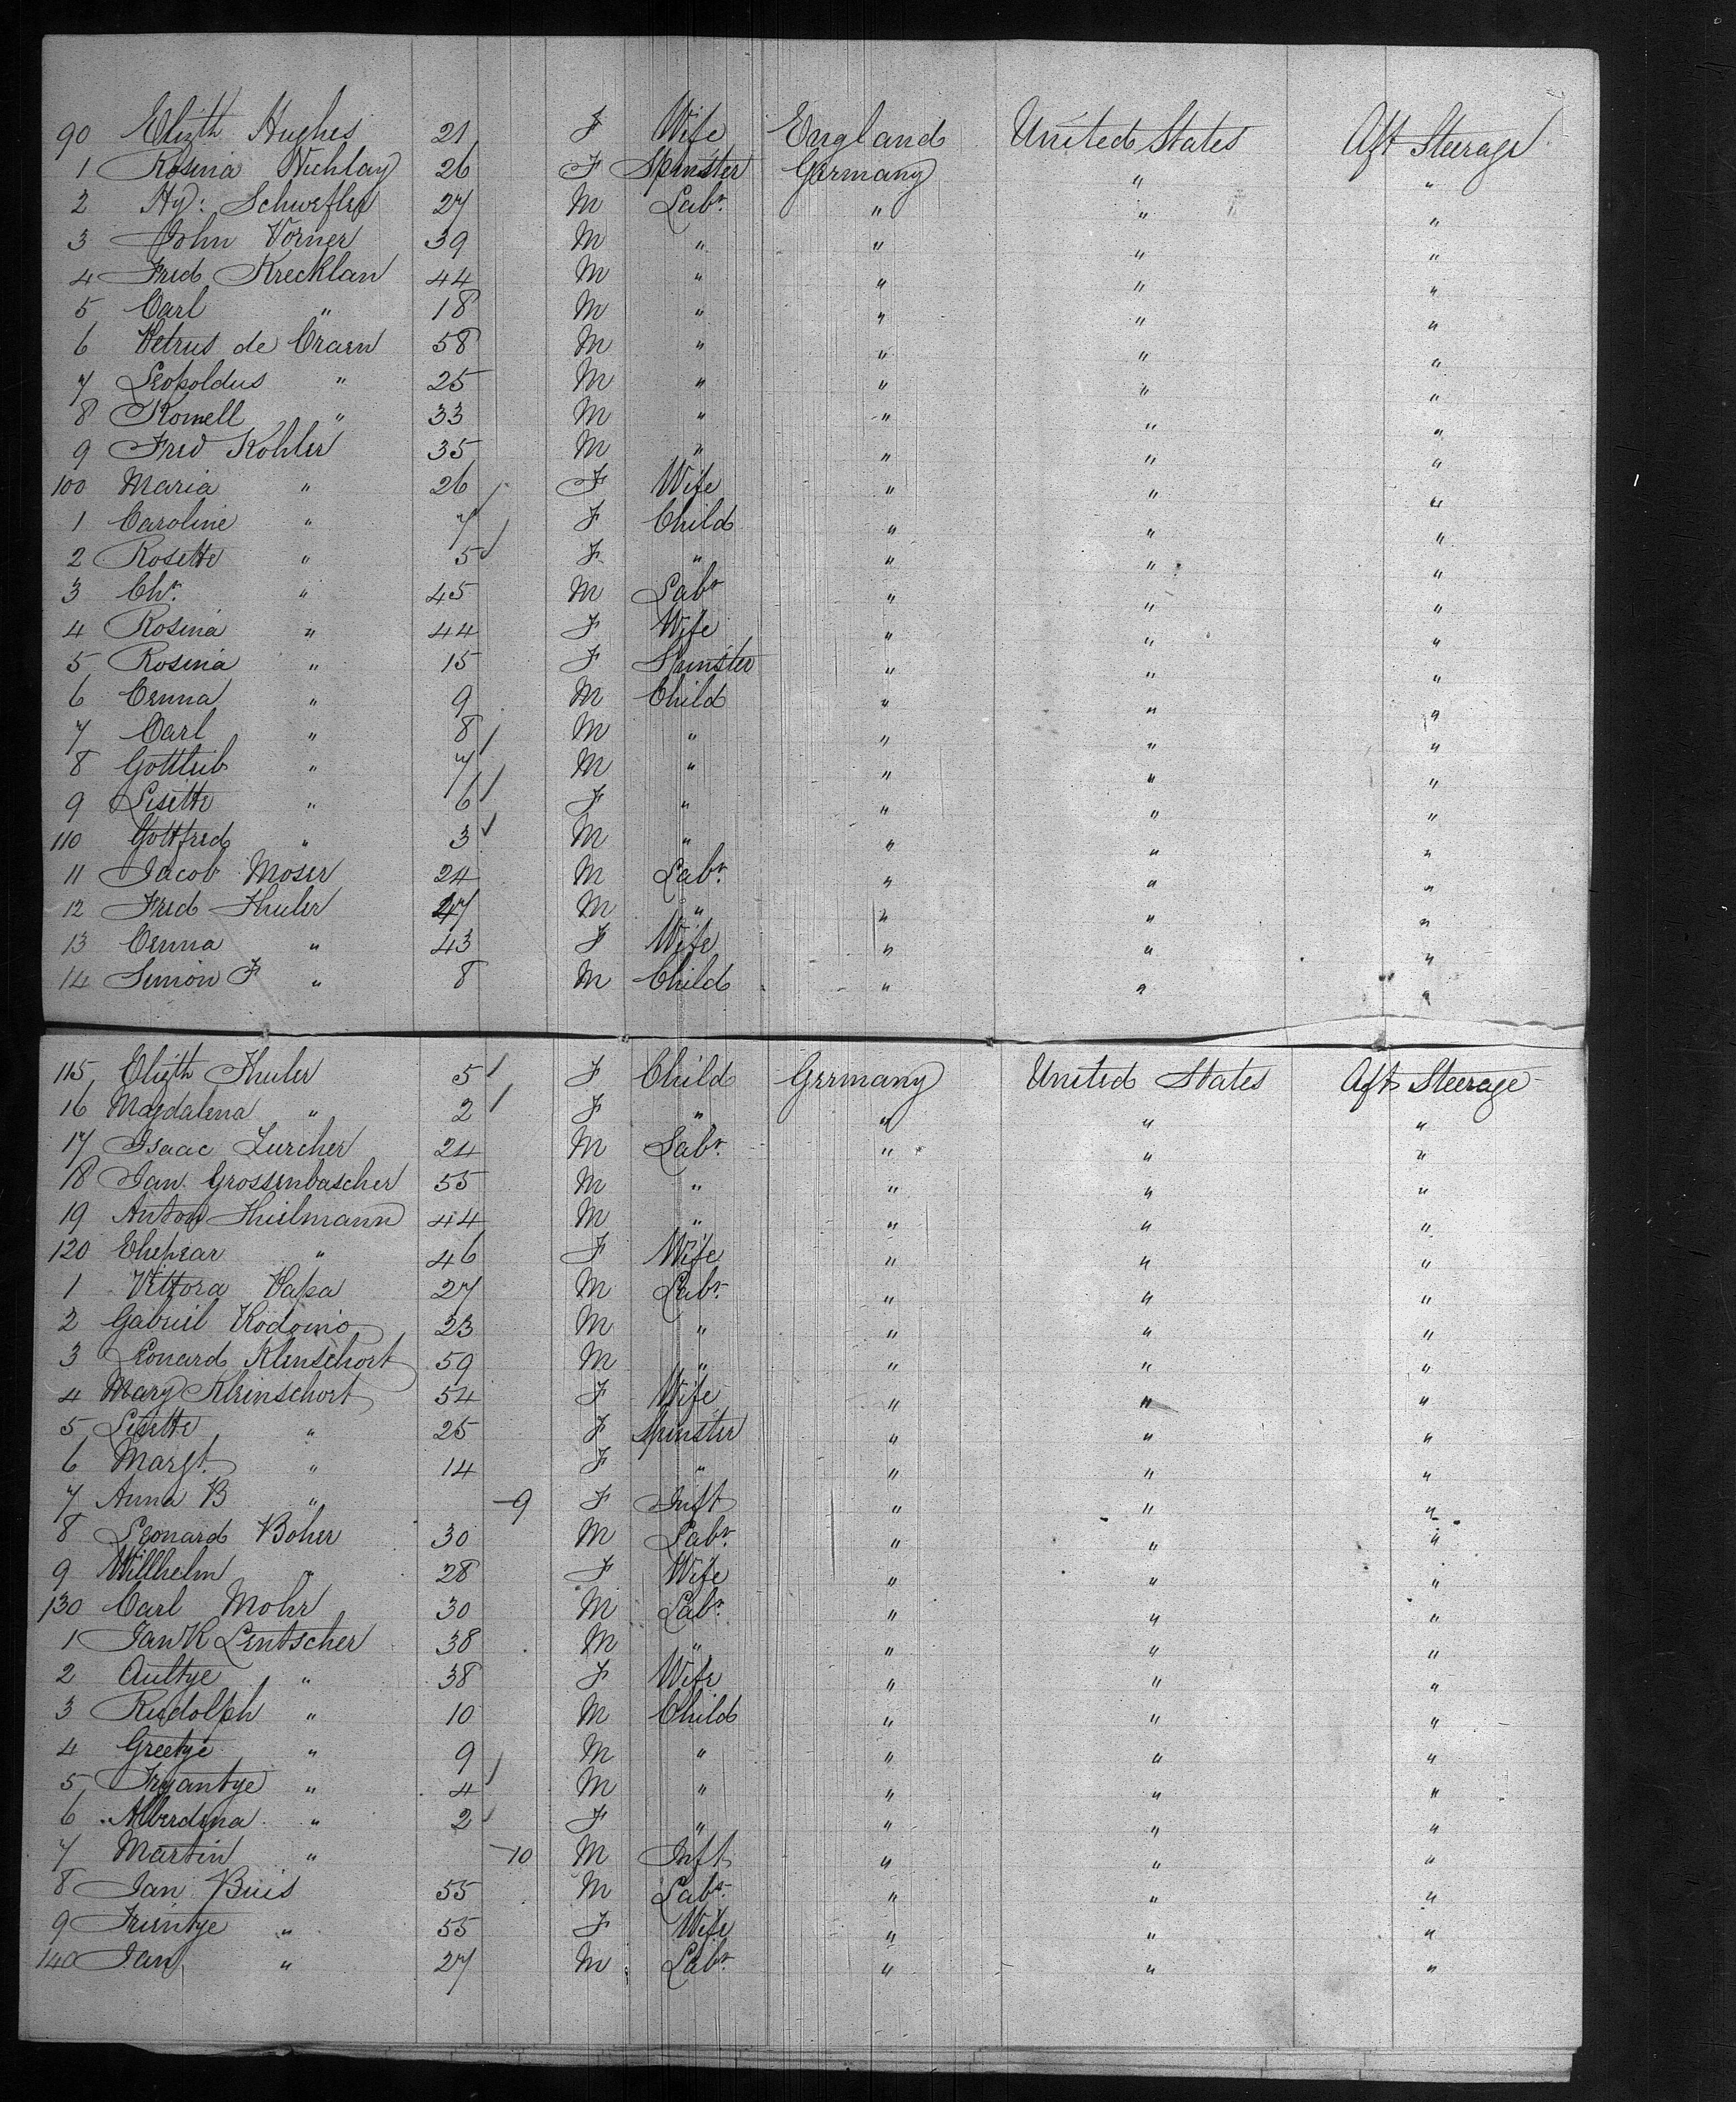 90 Elizth Hughes 21 F Wife England United States Aft Steerage
1 Rosina Nichlay 26 F Spinster Germany " "
2 Hy: Schwefler 27 M Labr. " " "
3 John Vorner 39 M " " " "
4 Fred Krecklan 44 M " " " "
5 Carl " 18 M " " " "
6 Petrus de Craen 58 M " " " "
7 Leopoldus " 25 M " " " "
8 Kornell " 33 M " " " "
9 Fred Kohler 35 M " " " "
100 Maria " 26 F Wife " " "
1 Caroline " 7 F Child " " "
2 Rosette " 5 F " " " "
3 Chr. " 45 M Labr " " "
4 Rosina " 44 F Wife " " "
5 Rosina " 15 F Spinster " " "
6 " 9 M Child " " "
7 Carl " 8 M " " " "
8 Gottlieb " 7 M " " " "
9 Lisette " 6 F " " " "
110 Gottfred " 3 M " " " "
11 Jacob Moser 24 M Labr. " " "
12 Fred Thuler 47 M " " " "
13 " 43 F Wife " " "
14 Simon F " 8 M Child " " "
115 Elizth Thuler 5 F Child Germany United States Aft Steerage
16 Magdalena " 2 F " " " "
17 Isaac Zurcher 24 M Labr. " " "
18 Jan Grossenbascher 55 M " " " "
19 Anton Thielmann 44 M " " " "
120 " 46 F Wife " " "
1 Vittora Papa 27 M Labr. " " "
2 Gabriel Rodoino 23 M " " " "
3 Leonard Klenschort 59 M " " " "
4 Mary Kleinschort 54 F Wife " " "
5 Lisette " 25 F Spinster " " "
6 Margt. " 14 F " " " "
7 Anna B " -9 F Inft " " "
8 Leonard Boher 30 M Labr. " " "
9 Willhelm " 28 F Wife " " "
130 Carl Mohr 30 M Labr. " " "
1 Jan K Lentscher 38 M " " " "
2 Aultye " 38 F Wife " " "
3 Rudolph " 10 M Child " " "
4 Greetje " 9 M " " " "
5 Tryantye " 4 M " " " "
6 Alberdina " 2 F " " " "
7 Martin " -10 M Inft " " "
8 Jan Buis 55 M Labr. " " "
9 Trientje " 55 F Wife " " "
140 Jan " 27 M Labr. " " "